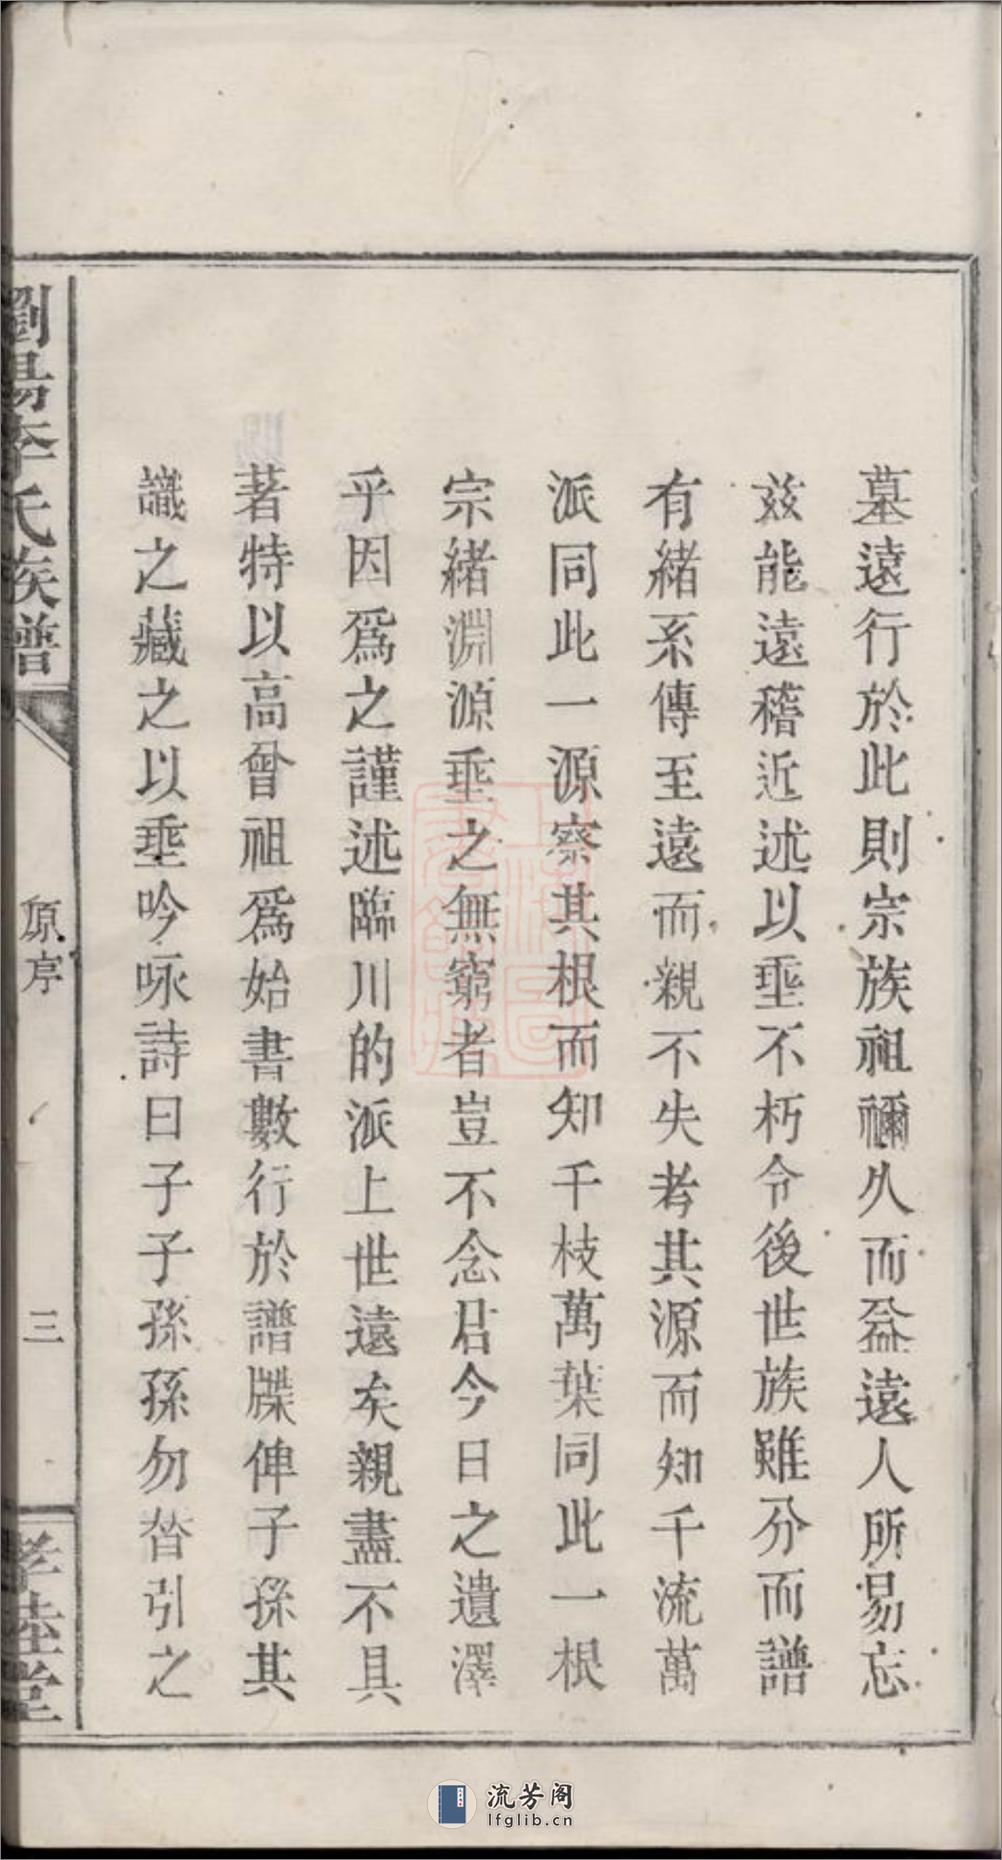 墓遠行於此則宗族祖禰久而益遠人所易忘
茲能遠稽近述以埀不朽令後世族雖分而譜
有緒系傳至遠而親不失考其源而知千流萬
派同此一源察其根而知千枝萬葉同此一根
宗緒淵源埀之無窮者豈不念君今日之遺澤
乎因爲之謹述臨川的派上世遠矣親盡不具
著特以高曾祖爲始書數行於譜牒俾子孫其
識之藏之以埀吟咏詩曰子子孫孫勿替引之
劉陽李氏族譜
原序
三
孝睦堂
流芳阁
lfglib.cn